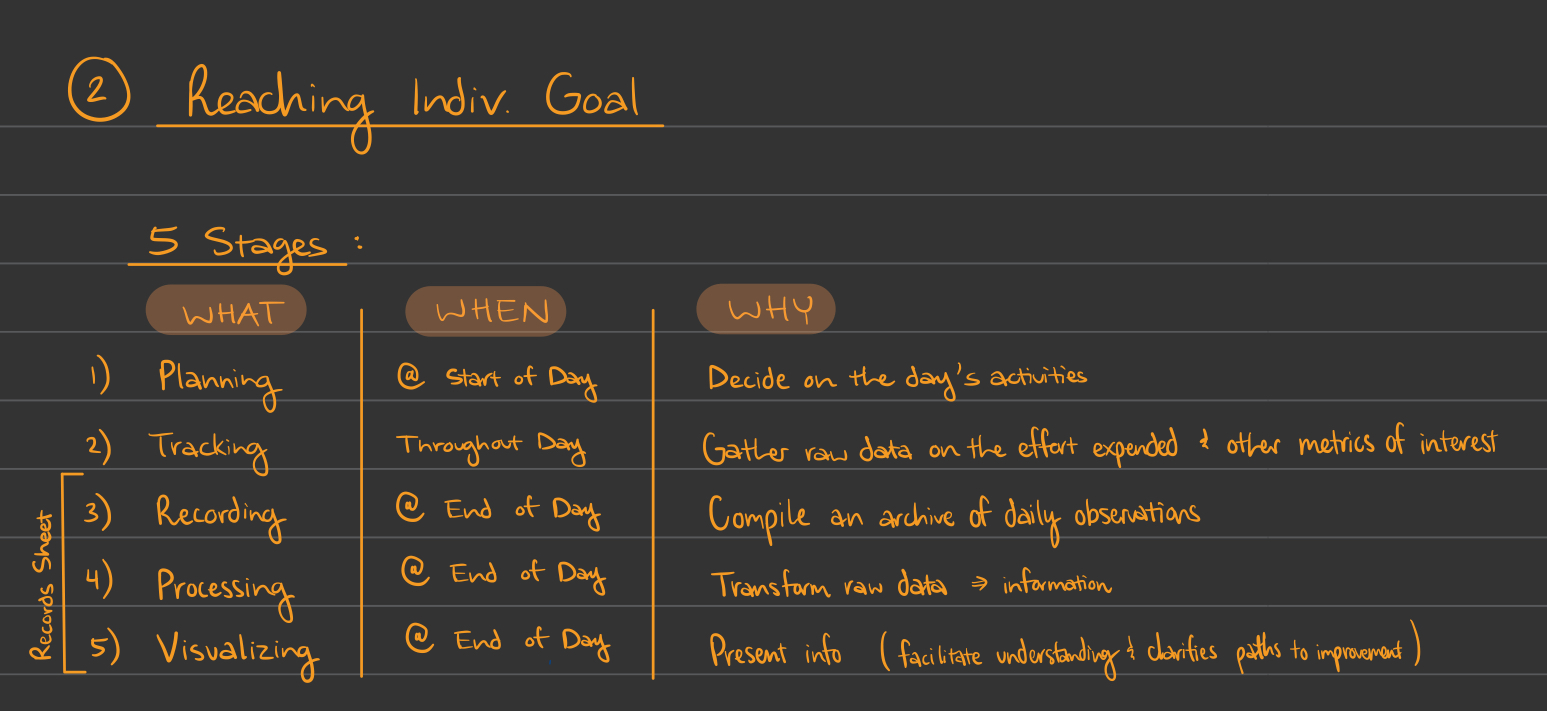 2 Reaching Indiv. Goal
5 Stages :
WHAT WHEN WHY
1) Planning @ Start of Day Decide on the day's activities
2) Tracking Throughout Day Gather raw data on the effort expended & other metrics of interest
3) Recording @ End of Day Compile an archive of daily observations
4) Processing @ End of Day Transform raw data ⇒ information
5) Visualizing @ End of Day Present info (facilitate understanding & clarifies paths to improvement)
Records Sheet